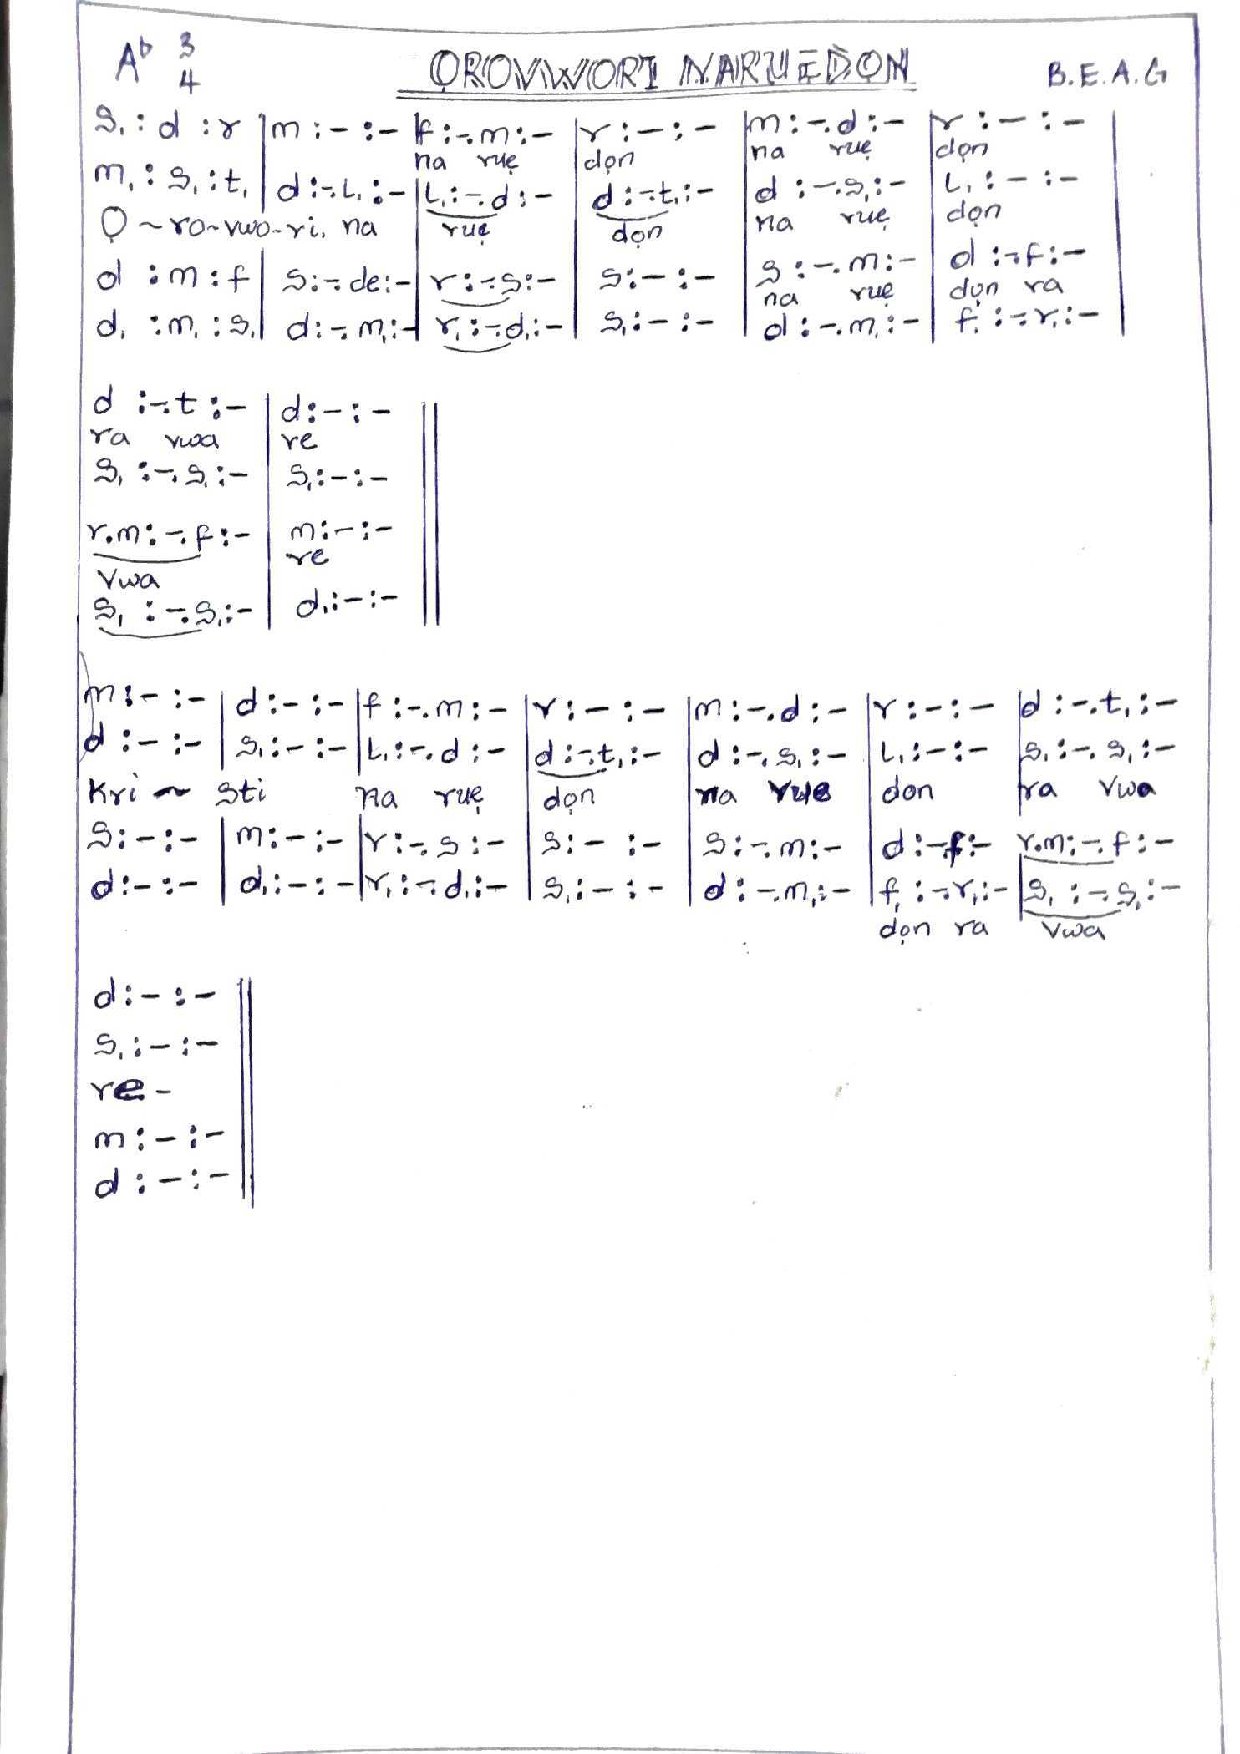 A♭ 3/4 ỌROVWORI NARUẸDỌN B.E.A.G
s, : d : r | m : - : - | f : -. m : - | r : - : - | m : -. d : - | r : - : - |
na ruẹ dọn na ruẹ dọn
m, : s, : t, | d : -. l, : - | l, : -. d : - | d : -. t, : - | d : -. s, : - | l, : - : - |
Ọ ~ ro - vwo - ri, na ruẹ dọn na ruẹ dọn
d : m : f | s : -. de : - | r : -. s : - | s : - : - | s : -. m : - | d : -. f : - |
na ruẹ dọn ra
d, : m, : s, | d : -. m, : - | r, : -. d, : - | s, : - : - | d : -. m, : - | f, : -. r, : - |
d : -. t : - | d : - : - ||
ra vwa re
s, : -. s, : - | s, : - : - ||
r.m : -. f : - | m : - : - ||
vwa re
s, : -. s, : - | d, : - : - ||
m : - : - | d : - : - | f : -. m : - | r : - : - | m : -. d : - | r : - : - | d : -. t, : -
d : - : - | s, : - : - | l, : -. d : - | d : -. t, : - | d : -. s, : - | l, : - : - | s, : -. s, : -
Kri ~ sti na ruẹ dọn na rue don ra vwa
s : - : - | m : - : - | r : -. s : - | s : - : - | s : -. m : - | d : -. f : - | r.m : -. f : -
d : - : - | d, : - : - | r, : -. d, : - | s, : - : - | d : -. m, : - | f, : -. r, : - | s, : -. s, : -
dọn ra vwa
d : - : - ||
s, : - : - ||
re -
m : - : - ||
d : - : - ||